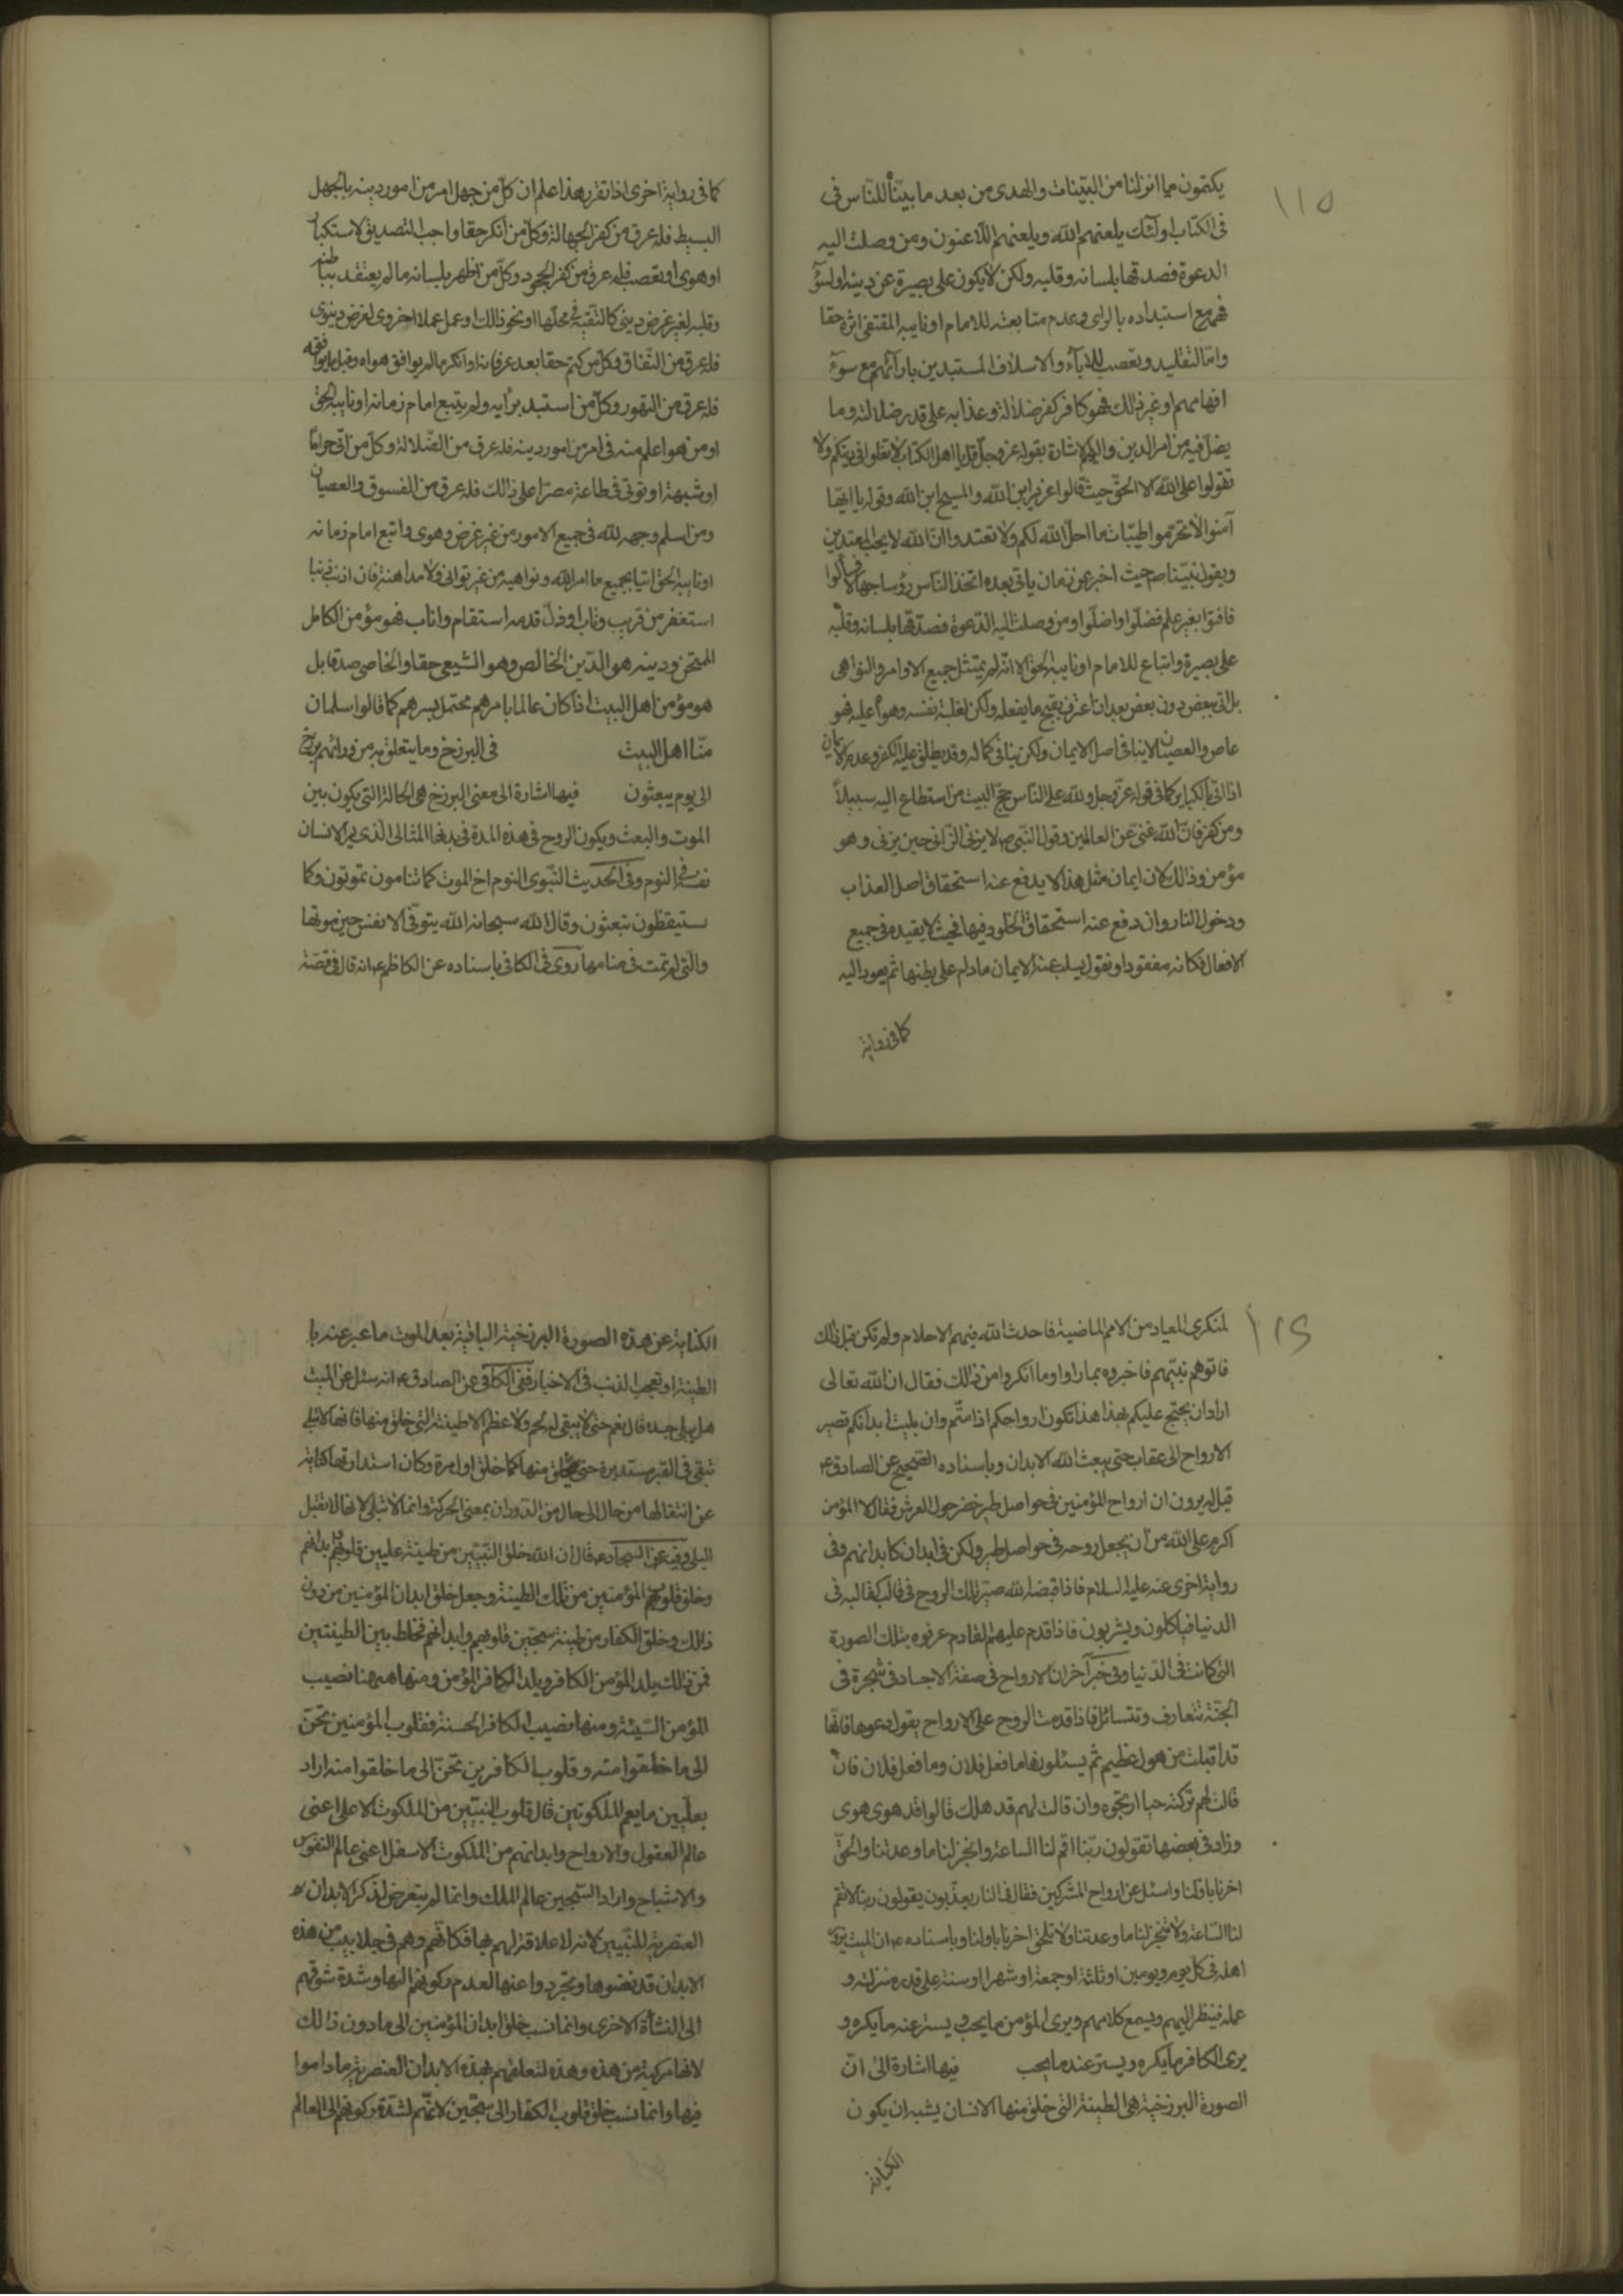 ١١٥
يكتمون ما انزلنا من البيّنات والهدى من بعد ما بيّنّاه للنّاس فى
فى الكتاب اولئك يلعنهم الله ويلعنهم اللّاعنون ومن وصلت اليه
الدعوة فصدقها بلسانه وقلبه ولكن لا يكون على بصيرة عن دينه اولسؤ
فهم مع استبداده بالراى وعدم متابعته للامام او نايبه المقتفى اثره حقا
وامّا لتقليد وتعصب للاباء والاسلاف المستبدين بارائهم مع سوء
افهامهم او غير ذالك فهو كافر كفر ضلالة وعذابه على قدر ضلالته وما
يضل فيه من امر الدين واليهم الاشارة بقوله عز وجل قل يا اهل الكتاب لا تغلوا فى دينكم ولا
تقولوا على الله الا الحق حيث قالوا عزير ابن الله والمسيح ابن الله وقوله يا ايها
آمنوا لا تحرّموا طيّبات ما احل الله لكم ولا تعتدوا ان الله لا يحب المعتدين
ويقول نبيّنا ص حيث اخبر عن زمان ياتى بعده اتخذ الناس رؤسا جهالا فسألوا
فافتوا بغير علم فضلّوا واضلّوا ومن وصلت اليه الدّعوة فصدّقها بلسانه وقلبه
على بصيرة واتباع للامام او نايبه الحق الا انّه لم يمتثل جميع الاوامر والنواهى
بل اتى ببعض دون بعض بعد ان اعترف بقبح ما يفعله ولكن لغلبة نفسه وهواه عليه فهو
عاص والعصيان لا ينافى اصل الايمان ولكن ينافى كماله وقد يطلق عليه الكفر وعدم الايمان
اذا اتى بالكباير كما فى قوله عزّ وجل ولله على الناس حج البيت من استطاع اليه سبيلاً
ومن كفر فان الله غنى عن العالمين وقول النّبى ص لا يزنى الزانى حين يزنى وهو
مؤمن وذالك لان ايمان مثل هذا لا يدفع عنه استحقاق اصل العذاب
ودخول النار وان دفع عنه استحقاق الخلود فيها فحيث لا يفيده فى جميع
الافعال فكانه مفقود او نقول يسلب عنه الايمان مادام على بطنها ثم يعود اليه
كما فى رواية
كما فى رواية اخرى اذا تقرر هذا اعلم ان كل من جهل امر من امور دينه بالجهل
البسيط فله عرق من كفر الجهالة وكل من انكر حقا واجب التصديق لاستكبار
او هوى او تعصب فله عرق من كفر الجحود وكل من اظهر بلسانه ما لم يعتقد بباطنه
وقلبه لغير غرض دينى كالتقية فى محلها او نحو ذالك او عمل عملا اخروى لغرض دنيوى
فله عرق من النّفاق وكل من كتم حقا بعد عرفانه او انكر ما لم يوافق هواه وقبل ما يوافقه
فله عرق من التهور وكل من استبد برأيه ولم يتبع امام زمانه او نايبه الحق
او من هو اعلم منه فى امر من امور دينه فله عرق من الضّلالة وكل من اتى حراما
او شبهة او توانى فى طاعة مصرا على ذالك فله عرق من الفسوق والعصيان
ومن اسلم وجهه لله فى جميع الامور من غير غرض وهوى واتبع امام زمانه
او نايبه الحق اتيا بجميع ما امر الله ونواهيه من غير توانى ولا مداهنة فان اذنب ذنبا
استغفر من قريب وتاب او ذل قدمه استقام واناب فهو مؤمن الكامل
الممتحن ودينه هو الدّين الخالص وهو الشيعى حقا والخاصى صدقا بل
هو مؤمن اهل البيت اذا كان عالما بامرهم محتمل لسرهم كما قالوا سلمان
منّا اهل البيت فى البرزخ وما يتعلق به من ورائهم برزخ
الى يوم يبعثون فيها اشارة الى معنى البرزخ هى الحالة التى يكون بين
الموت والبعث ويكون الروح فى هذه المدة فى بدنها المثالى الّذى يرى الانسان
نفسه فى النوم وفى الحديث النّبوى النوم اخ الموت كما تنامون تموتون وكما
تستيقظون تبعثون وقال الله سبحانه الله يتوفّى الانفس حين موتها
والتى لم تمت فى منامها روى فى الكافى باسناده عن الكاظم ع انه قال فى قصّة
١١٦
لمنكرى المعاد من الامم الماضية فاحدث الله فيهم الاحلام ولم تكن قبل ذالك
فاتوهم نبيّهم فاخبروه بما راوا وما انكروا من ذالك فقال ان الله تعالى
اراد ان يحتج عليكم بهذا هذا تكون ارواحكم اذا متّم وان بليت ابدانكم تصير
الارواح الى عقاب حتى يبعث الله الابدان وباسناده الصّحيح عن الصادق ع
قيل له يرون ان ارواح المؤمنين فى حواصل طير خضر حول العرش فقال لا المؤمن
اكرم على الله من ان يجعل روحه فى حواصل طير ولكن فى ابدان كابدانهم وفى
رواية اخرى عنه عليه السلام فاذا قبضه الله صيّر تلك الروح فى قالب كقالبه فى
الدنيا فياكلون ويشربون فاذا قدم عليهم القادم عرفوه بتلك الصورة
التى كانت فى الدّنيا وفى خبر آخر ان الارواح فى صفة الاجساد فى شجرة فى
الجنّة تتعارف وتتسائل فاذا قدمت الروح على الارواح يقول دعوها فانّها
قد اقبلت من هول عظيم ثم يسئلونها ما فعل فلان وما فعل فلان فان
قالت لهم تركته حيا ارتجوه وان قالت لهم قد هلك قالوا قد هوى هوى
وزاد فى بعضها تقولون ربّنا اقم لنا الساعة وانجز لنا ما وعدتنا والحق
اخرنا باولنا واسئل عن ارواح المشركين فقال فى النار يعذّبون يقولون ربنا لا تقم
لنا السّاعة ولا تنجز لنا ما وعدتنا ولا تلحق اخرنا باولنا وباسناده ع ان الميت يزور
اهله فى كل يوم ويومين او ثلثة او جمعة او شهرا او سنة على قدر منزلته و
عمله فينظر اليهم ويسمع كلامهم ويرى المؤمن ما يحب ويستر عنه ما يكره و
يرى الكافر ما يكره ويستر عنه ما يحب فيها اشارة الى انّ
الصورة البرزخية هى الطينة التى خلق منها الانسان يشبه ان يكون
الكناية
الكناية عن هذه الصورة البرزخية الباقية بعد الموت ما عبر عنه با
الطينة او بعجب الذنب فى الاخبار ففى الكافى عن الصادق ع انه سئل عن الميت
هل يبلى جسده قال نعم حتى لا يبقى له لحم ولا عظم الا طينته التى خلق منها فانها لا تبلى
تبقى فى القبر مستديرة حتى يخلق منها كما خلق اول مرة وكان استدارتها كناية
عن انتقالها من حال الى حال من الدّوران بمعنى الحركة وانما لا تبلى لانها لا تقبل
البلى وفيه عن السجاد ع قال ان الله خلق النّبيّين من طينة عليين قلوبهم وابدانهم
وخلق قلوب المؤمنين من تلك الطينة وجعل خلق ابدان المؤمنين من دون
ذالك وخلق الكفار من طينة سجّين قلوبهم وابدانهم فخلط بين الطينتين
فمن ذالك يلد المؤمن الكافر ويلد الكافر المؤمن ومنها ههنا نصيب
المؤمن السّيئة ومنها نصيب الكافر الحسنة فقلوب المؤمنين تحنّ
الى ما خلقوا منه وقلوب الكافرين تحنّ الى ما خلقوا منه اراد
بعلّيين ما يعم الملكوتين قال قلوب النبيّين من الملكوت الاعلى اعنى
عالم العقول والارواح وابدانهم من الملكوت الاسفل اعنى عالم النفوس
والاشباح واراد السّجين عالم الملك وانما لم يتعرض لذكر الابدان
العنصرية للنّبيين لانه لا علاقة لهم بها فكانّهم وهم فى جلابيب من هذه
الابدان قد نفضوها وتجردوا عنها لعدم ركونهم اليها وشدة شوقهم
الى النشأة الاخرى وانما نسب خلق ابدان المؤمنين الى ما دون ذالك
لانها مركبة من هذه وهذه لتعلقهم بهذه الابدان العنصرية ما داموا
فيها وانما نسب خلق قلوب الكفار الى سجّين لانّهم لشدّة ركونهم الى العالم